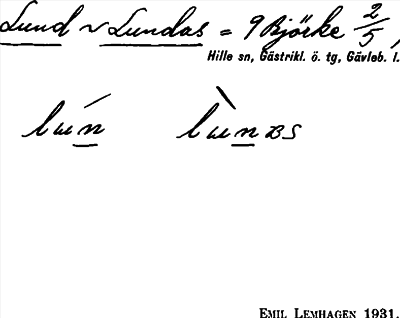 Lund ~ Lundas = 9 Björke 2/5,
Hille sn, Gästrikl. ö. tg, Gävleb. l.
lún lùnɑs
EMIL LEMHAGEN 1931.